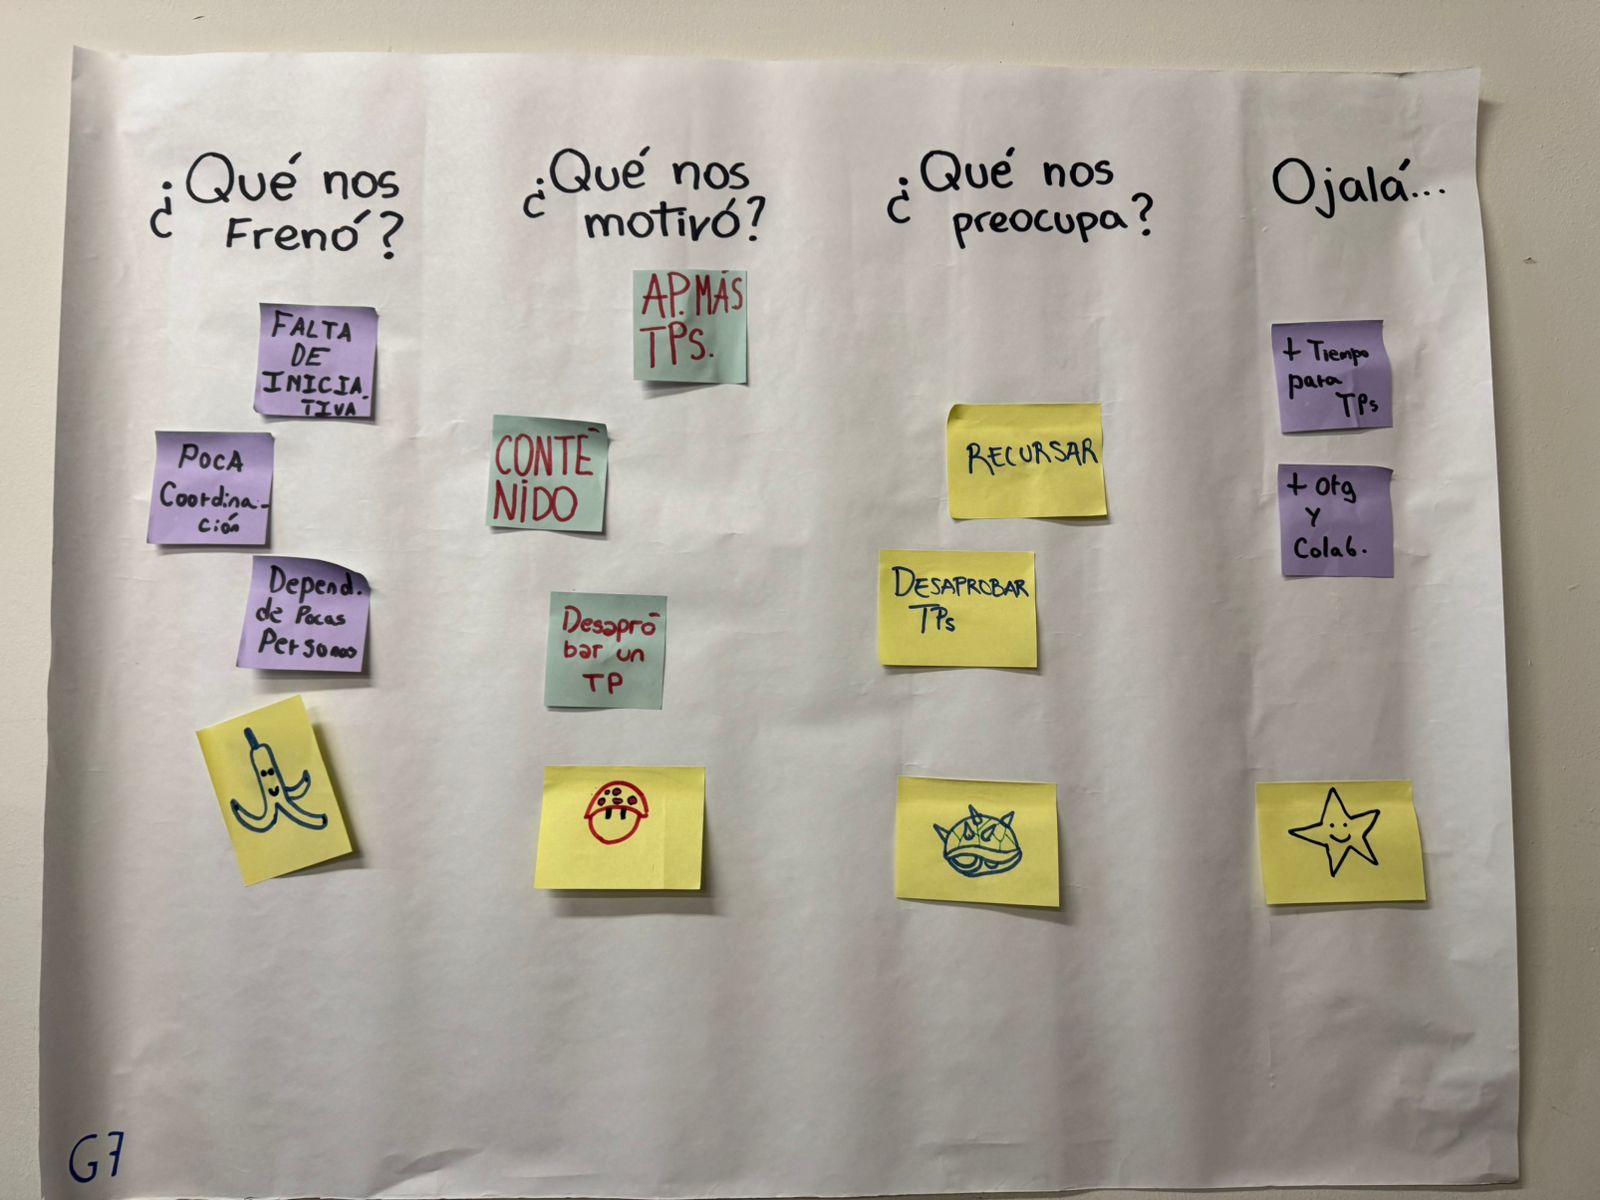 ¿Qué nos
Frenó?
FALTA
DE
INICIA.
TIVA
POCA
Coordina-
ción
Depend.
de Pocas
Personas
¿Qué nos
motivó?
AP. MÁS
TPs.
CONTE
NIDO
Desapro
bar un
TP
¿Qué nos
preocupa?
RECURSAR
DESAPROBAR
TPs
Ojalá...
+ Tiempo
para
TPs
+ Org
Y
Colab.
G7